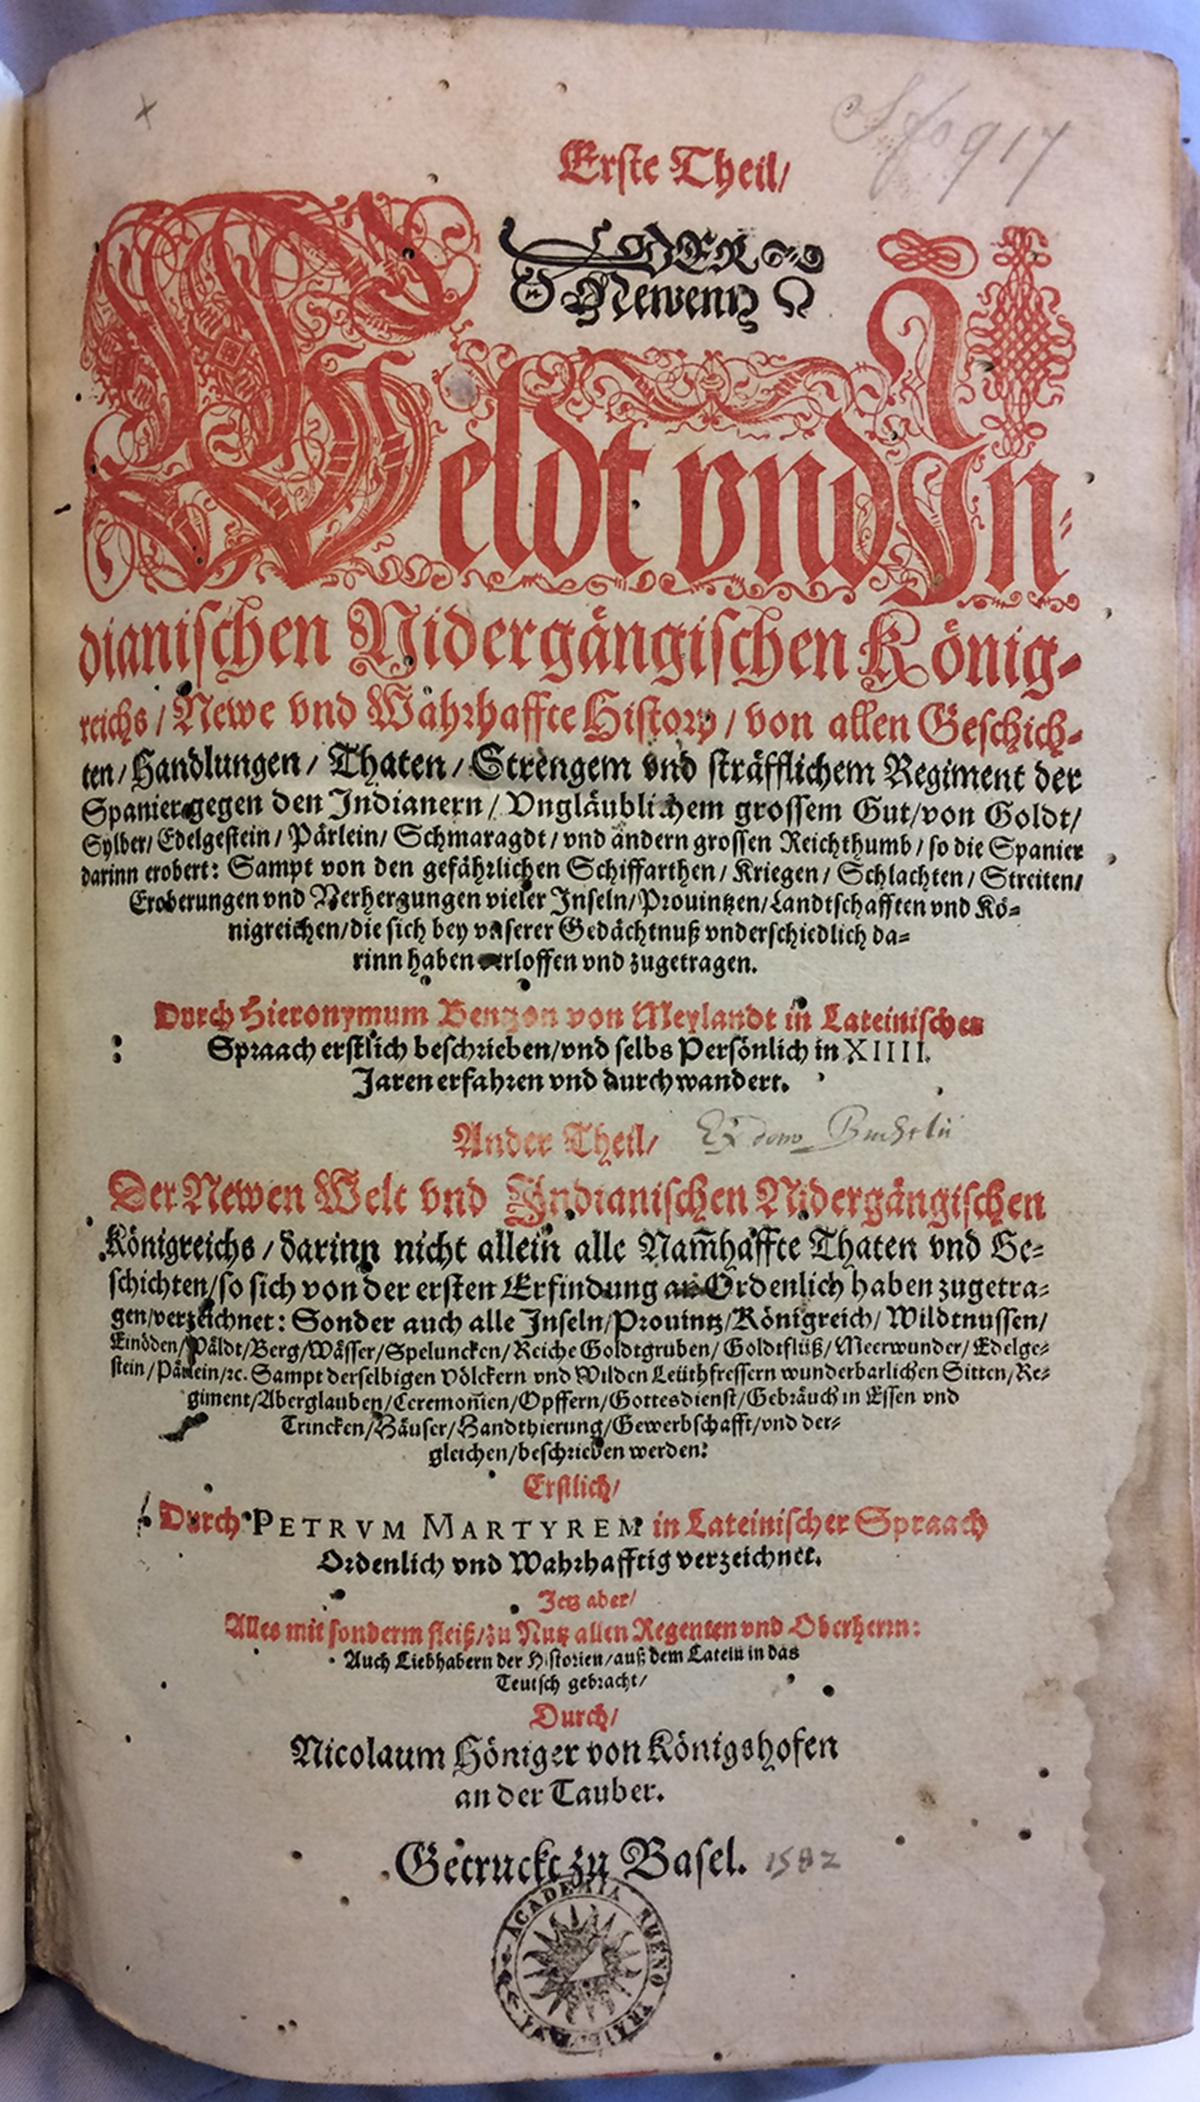 Erste Theil/
DER
Newenn
Weldt vnd In-
dianischen Nidergängischen König-
reichs/Newe vnd Wahrhaffte History/von allen Geschich-
ten/Handlungen/Thaten/Strengem vnd sträfflichem Regiment der
Spanier gegen den Indianern/Vngläublichem grossem Gut/von Goldt/
Sylber/Edelgestein/Pärlein/Schmaragdt/vnd andern grossen Reichthumb/so die Spanier
darinn erobert: Sampt von den gefährlichen Schiffarthen/Kriegen/Schlachten/Streiten/
Eroberungen vnd Verhergungen vieler Inseln/Prouintzen/Landtschafften vnd Kö-
nigreichen/die sich bey vnserer Gedächtnuß vnderschiedlich da-
rinn haben verloffen vnd zugetragen.
Durch Hieronymum Bentzon von Meylandt in Lateinischer
Spraach erstlich beschrieben/vnd selbs Persönlich in XIIII.
Jaren erfahren vnd durchwandert.
Ander Theil/ Ex dono Buchelii
Der Newen Welt vnd Indianischen Nidergängischen
Königreichs/darinn nicht allein alle Nam̃haffte Thaten vnd Ge-
schichten/so sich von der ersten Erfindung an Ordenlich haben zugetra-
gen/verzeichnet: Sonder auch alle Inseln/Prouintz/Königreich/Wildtnussen/
Einöden/Wäldt/Berg/Wässer/Speluncken/Reiche Goldtgruben/Goldtflüß/Meerwunder/Edelge-
stein/Pärlein/ꝛc. Sampt derselbigen Völckern vnd Wilden Leüthfressern wunderbarlichen Sitten/Re-
giment/Aberglauben/Ceremoni̅en/Opffern/Gottesdienst/Gebräuch in Essen vnd
Trincken/Häuser/Handthierung/Gewerbschafft/vnd der-
gleichen/beschrieben werden:
Erstlich/
Durch PETRVM MARTYREM in Lateinischer Spraach
Ordenlich vnd Wahrhafftig verzeichnet.
Jetz aber/
Alles mit sonderm fleiß/zu Nutz allen Regenten vnd Oberherrn:
Auch Liebhabern der Historien/auß dem Latein in das
Teutsch gebracht/
Durch/
Nicolaum Höniger von Königshofen
an der Tauber.
Getruckt zu Basel. 1582
ACADEMIA RHENO TRAIECTINA